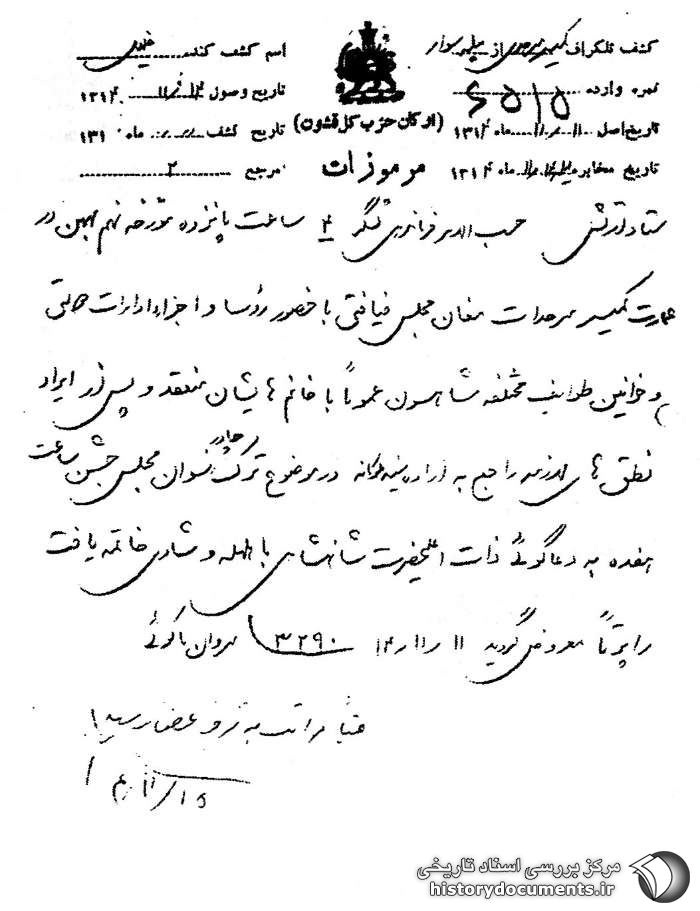 کشف تلگراف کمیسر سرحدی از بیله سوار
اسم کشف کننده
نمره وارده ۶۵۱۵
تاریخ وصول ۱۳۱۴
(ارکان حزب کل قشون)
تاریخ اصل ۱۱ ماه ۱۳۱۴
تاریخ کشف ماه ۱۳۱۰
مرموزات
تاریخ مخابره ماه ۱۳۱۴
نمرجع ۲
ستاد ارتش حسب الامر فرماندهی لشگر ۴ ساعت پانزده مورخه نهم بهمن در
عمارت کمیسر سرحدات مغان مجلس ضیافتی با حضور رؤسا و اجزاء ادارات دولتی
و خوانین طوایف مختلفه شاهسون عموماً با خانم هایشان منعقد و پس از ایراد
نطق های لازمه راجع به اراده سنیه ملوکانه در موضوع ترک چادر نسوان مجلس جشن ساعت
هفده به دعاگوئی ذات اعلیحضرت شاهنشاهی با هلهله و شادی خاتمه یافت
راپرتاً معروض گردید ۱۱ ر۱۱ر۱۴ ۳۲۹۰ سروان باکوئی
مراتب به شرف عرض رسید
۱۵/۱۱
مرکز بررسی اسناد تاریخی
historydocuments.ir